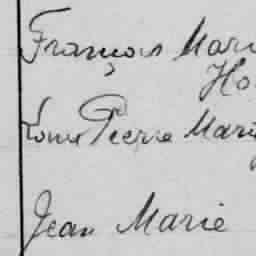 François Mari
Ho
Louis Pierre Marie
Jean Marie